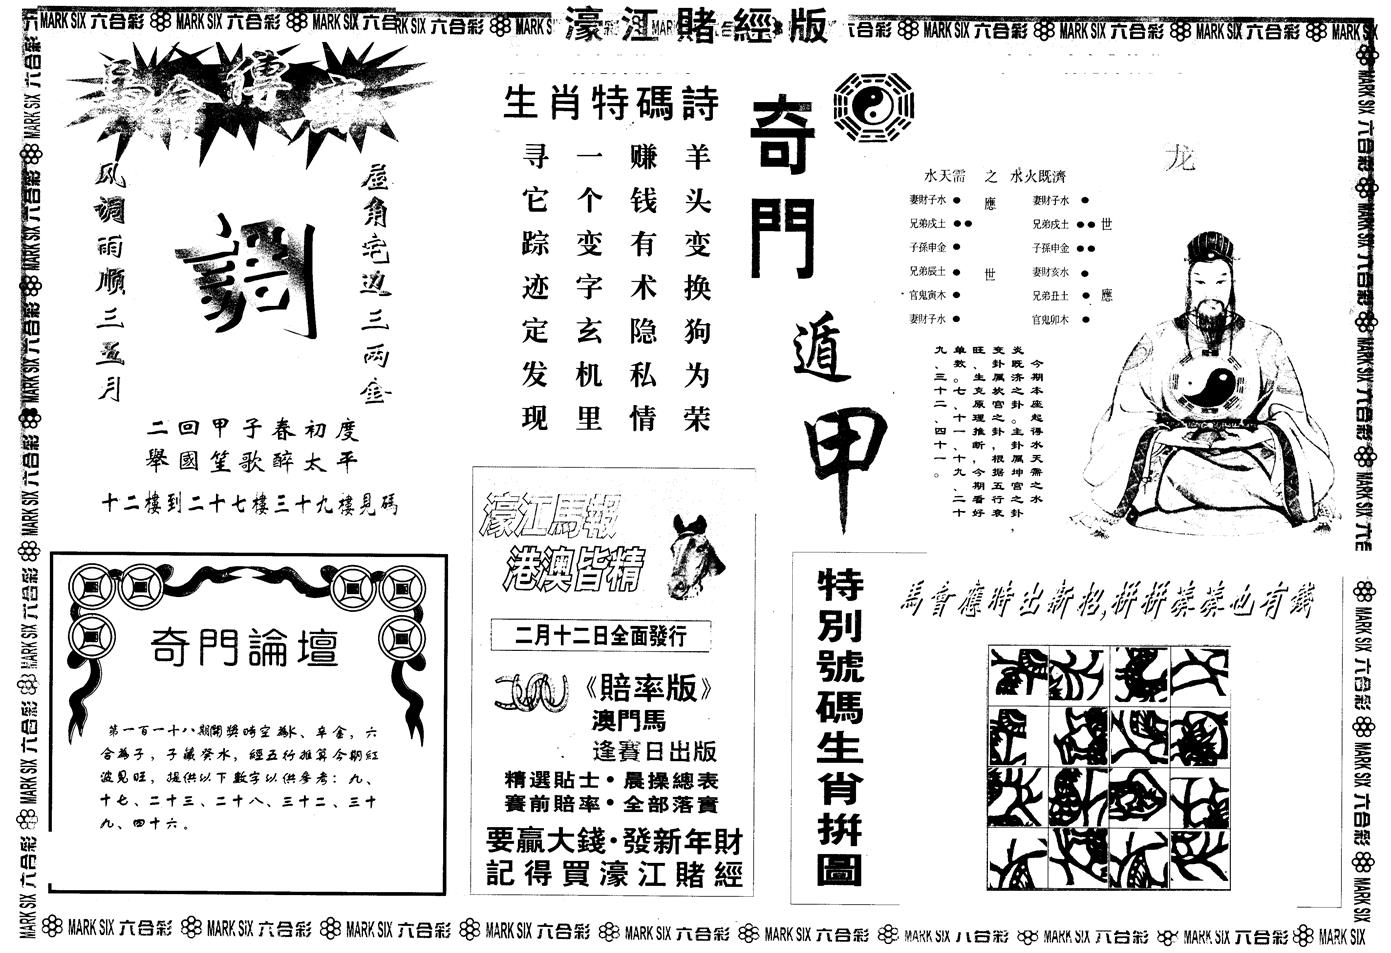 濠江賭經版
MARK SIX 六合彩
馬會傳密
屋角宅边三两金
风调雨顺三五月
調
二回甲子春初度
舉國笙歌醉太平
十二樓到二十七樓三十九樓見碼
奇門論壇
第一百一十八期開獎時空為水、辛金，六
合為子，子藏癸水，經五行推算今期紅
波見旺，提供以下數字以供參考：九、
十七、二十三、二十八、三十二、三十
九、四十六。
生肖特碼詩
羊头变换狗为荣
赚钱有术隐私情
一个变字玄机里
寻它踪迹定发现
濠江馬報
港澳皆精
二月十二日全面發行
《賠率版》
澳門馬
逢賽日出版
精選貼士·晨操總表
賽前賠率·全部落實
要贏大錢·發新年財
記得買濠江賭經
奇門遁甲
龙
水天需 之 水火既濟
妻財子水 應 妻財子水
兄弟戌土 兄弟戌土 世
子孫申金 子孫申金
兄弟辰土 世 妻財亥水
官鬼寅木 兄弟丑土 應
妻財子水 官鬼卯木
今期本座起得水天需之水
炎既济之卦。主卦属坤宫之卦，
变卦属坎宫之卦，根据五行衰
旺、生克原理推断，今期看好
单数。七、十一、十九、二十
九、三十二、四十一。
特別號碼生肖拼圖
馬會應時出新招,拼拼湊湊也有錢